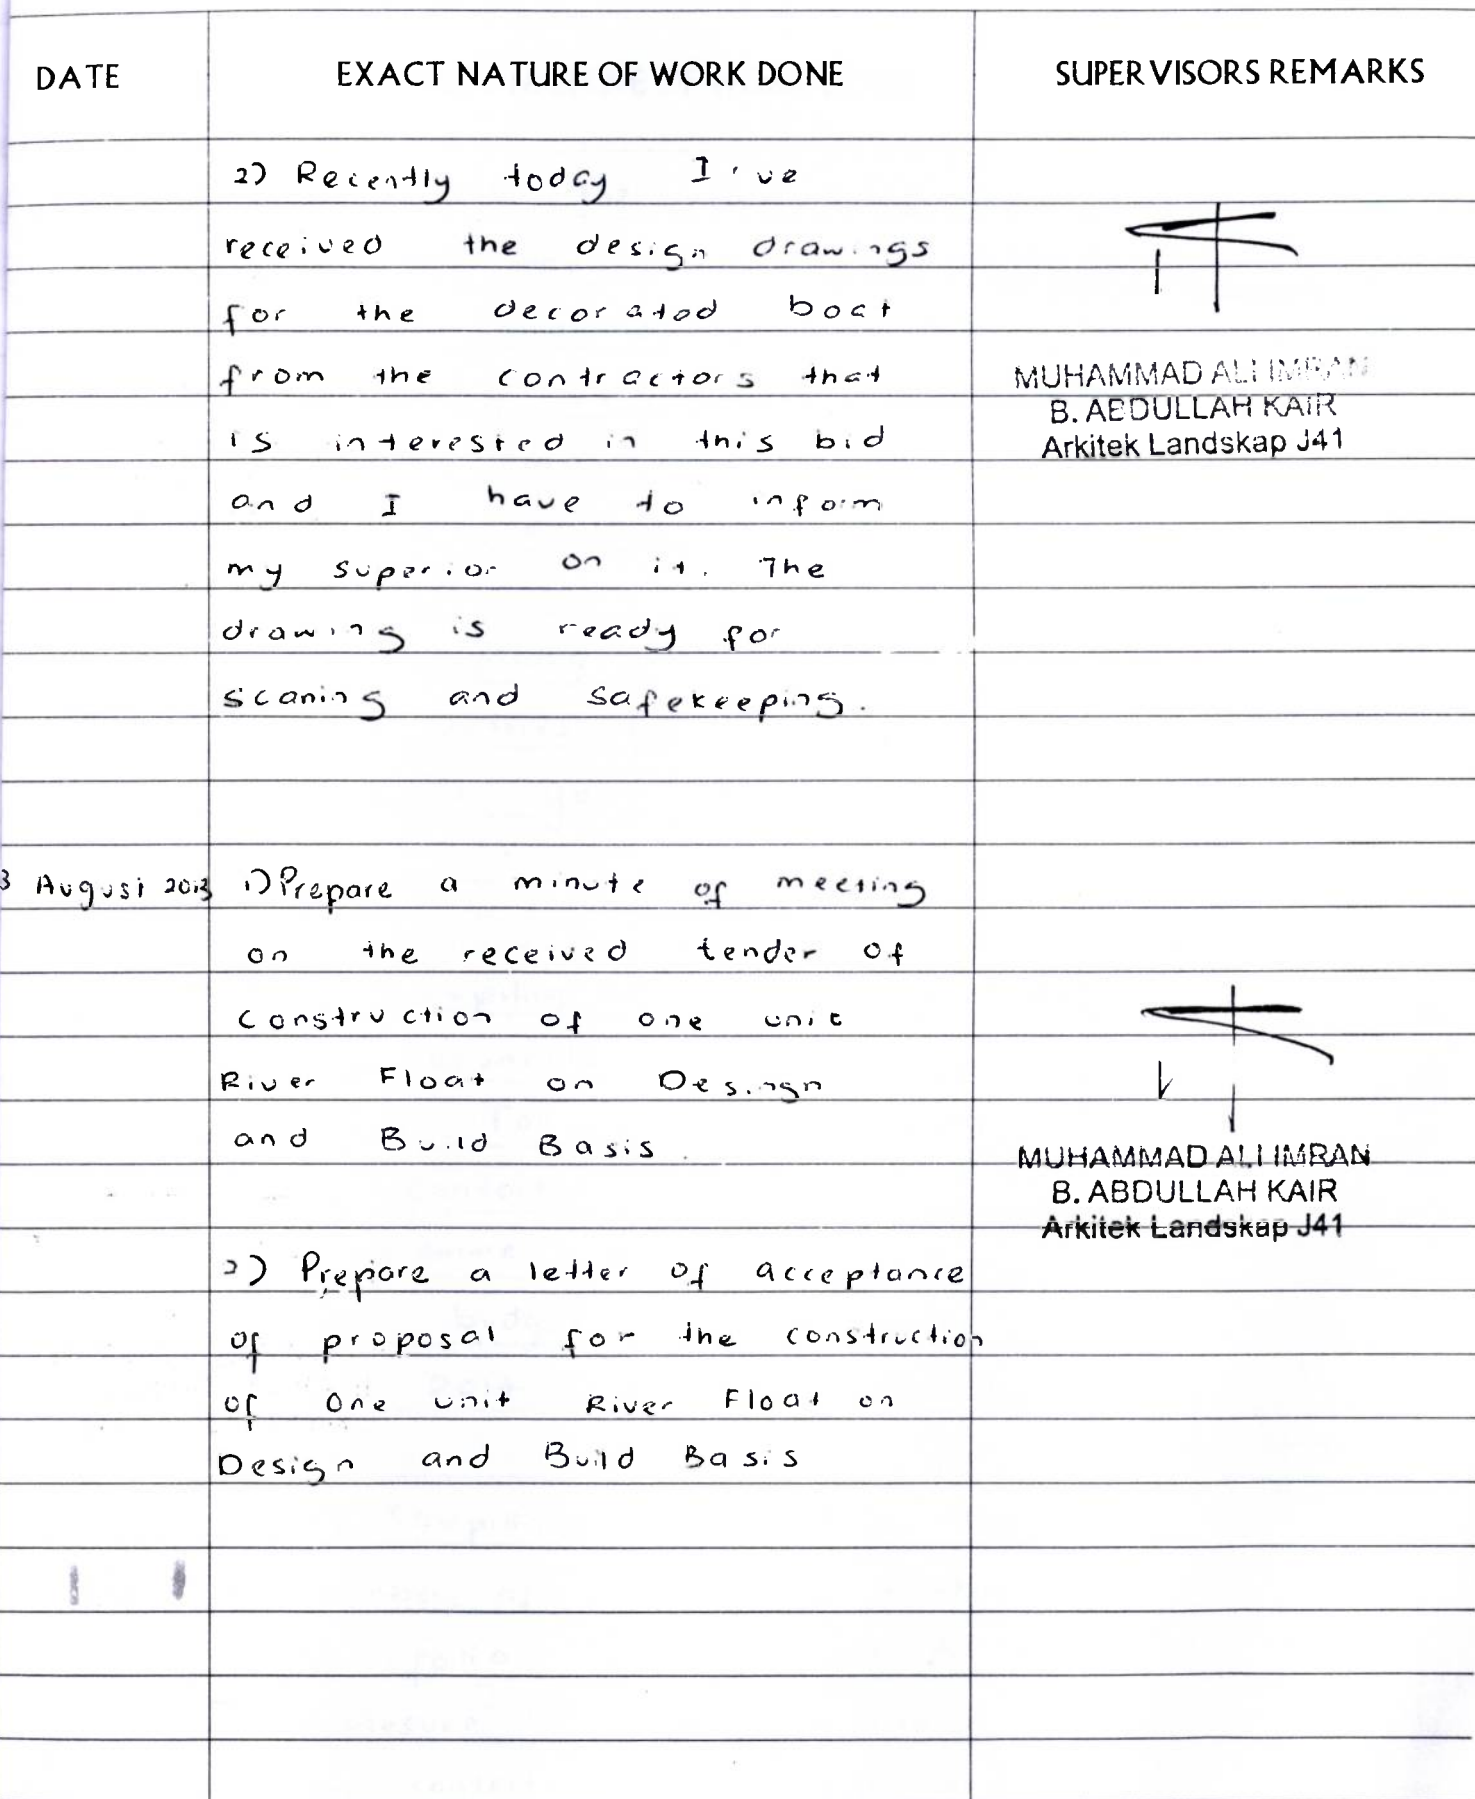 DATE EXACT NATURE OF WORK DONE SUPERVISORS REMARKS
2) Recently today I've
received the design drawings
for the decorated boat
from the contractors that
is interested in this bid
and I have to inform
my superior on it. The
drawing is ready for
scaning and safekeeping.
MUHAMMAD ALI IMRAN
B. ABDULLAH KAIR
Arkitek Landskap J41
3 August 2013 1) Prepare a minute of meeting
on the received tender of
construction of one unit
River Float on Desingn
and Build Basis.
MUHAMMAD ALI IMRAN
B. ABDULLAH KAIR
Arkitek Landskap J41
2) Prepare a letter of acceptance
of proposal for the construction
of one unit River Float on
Design and Build Basis